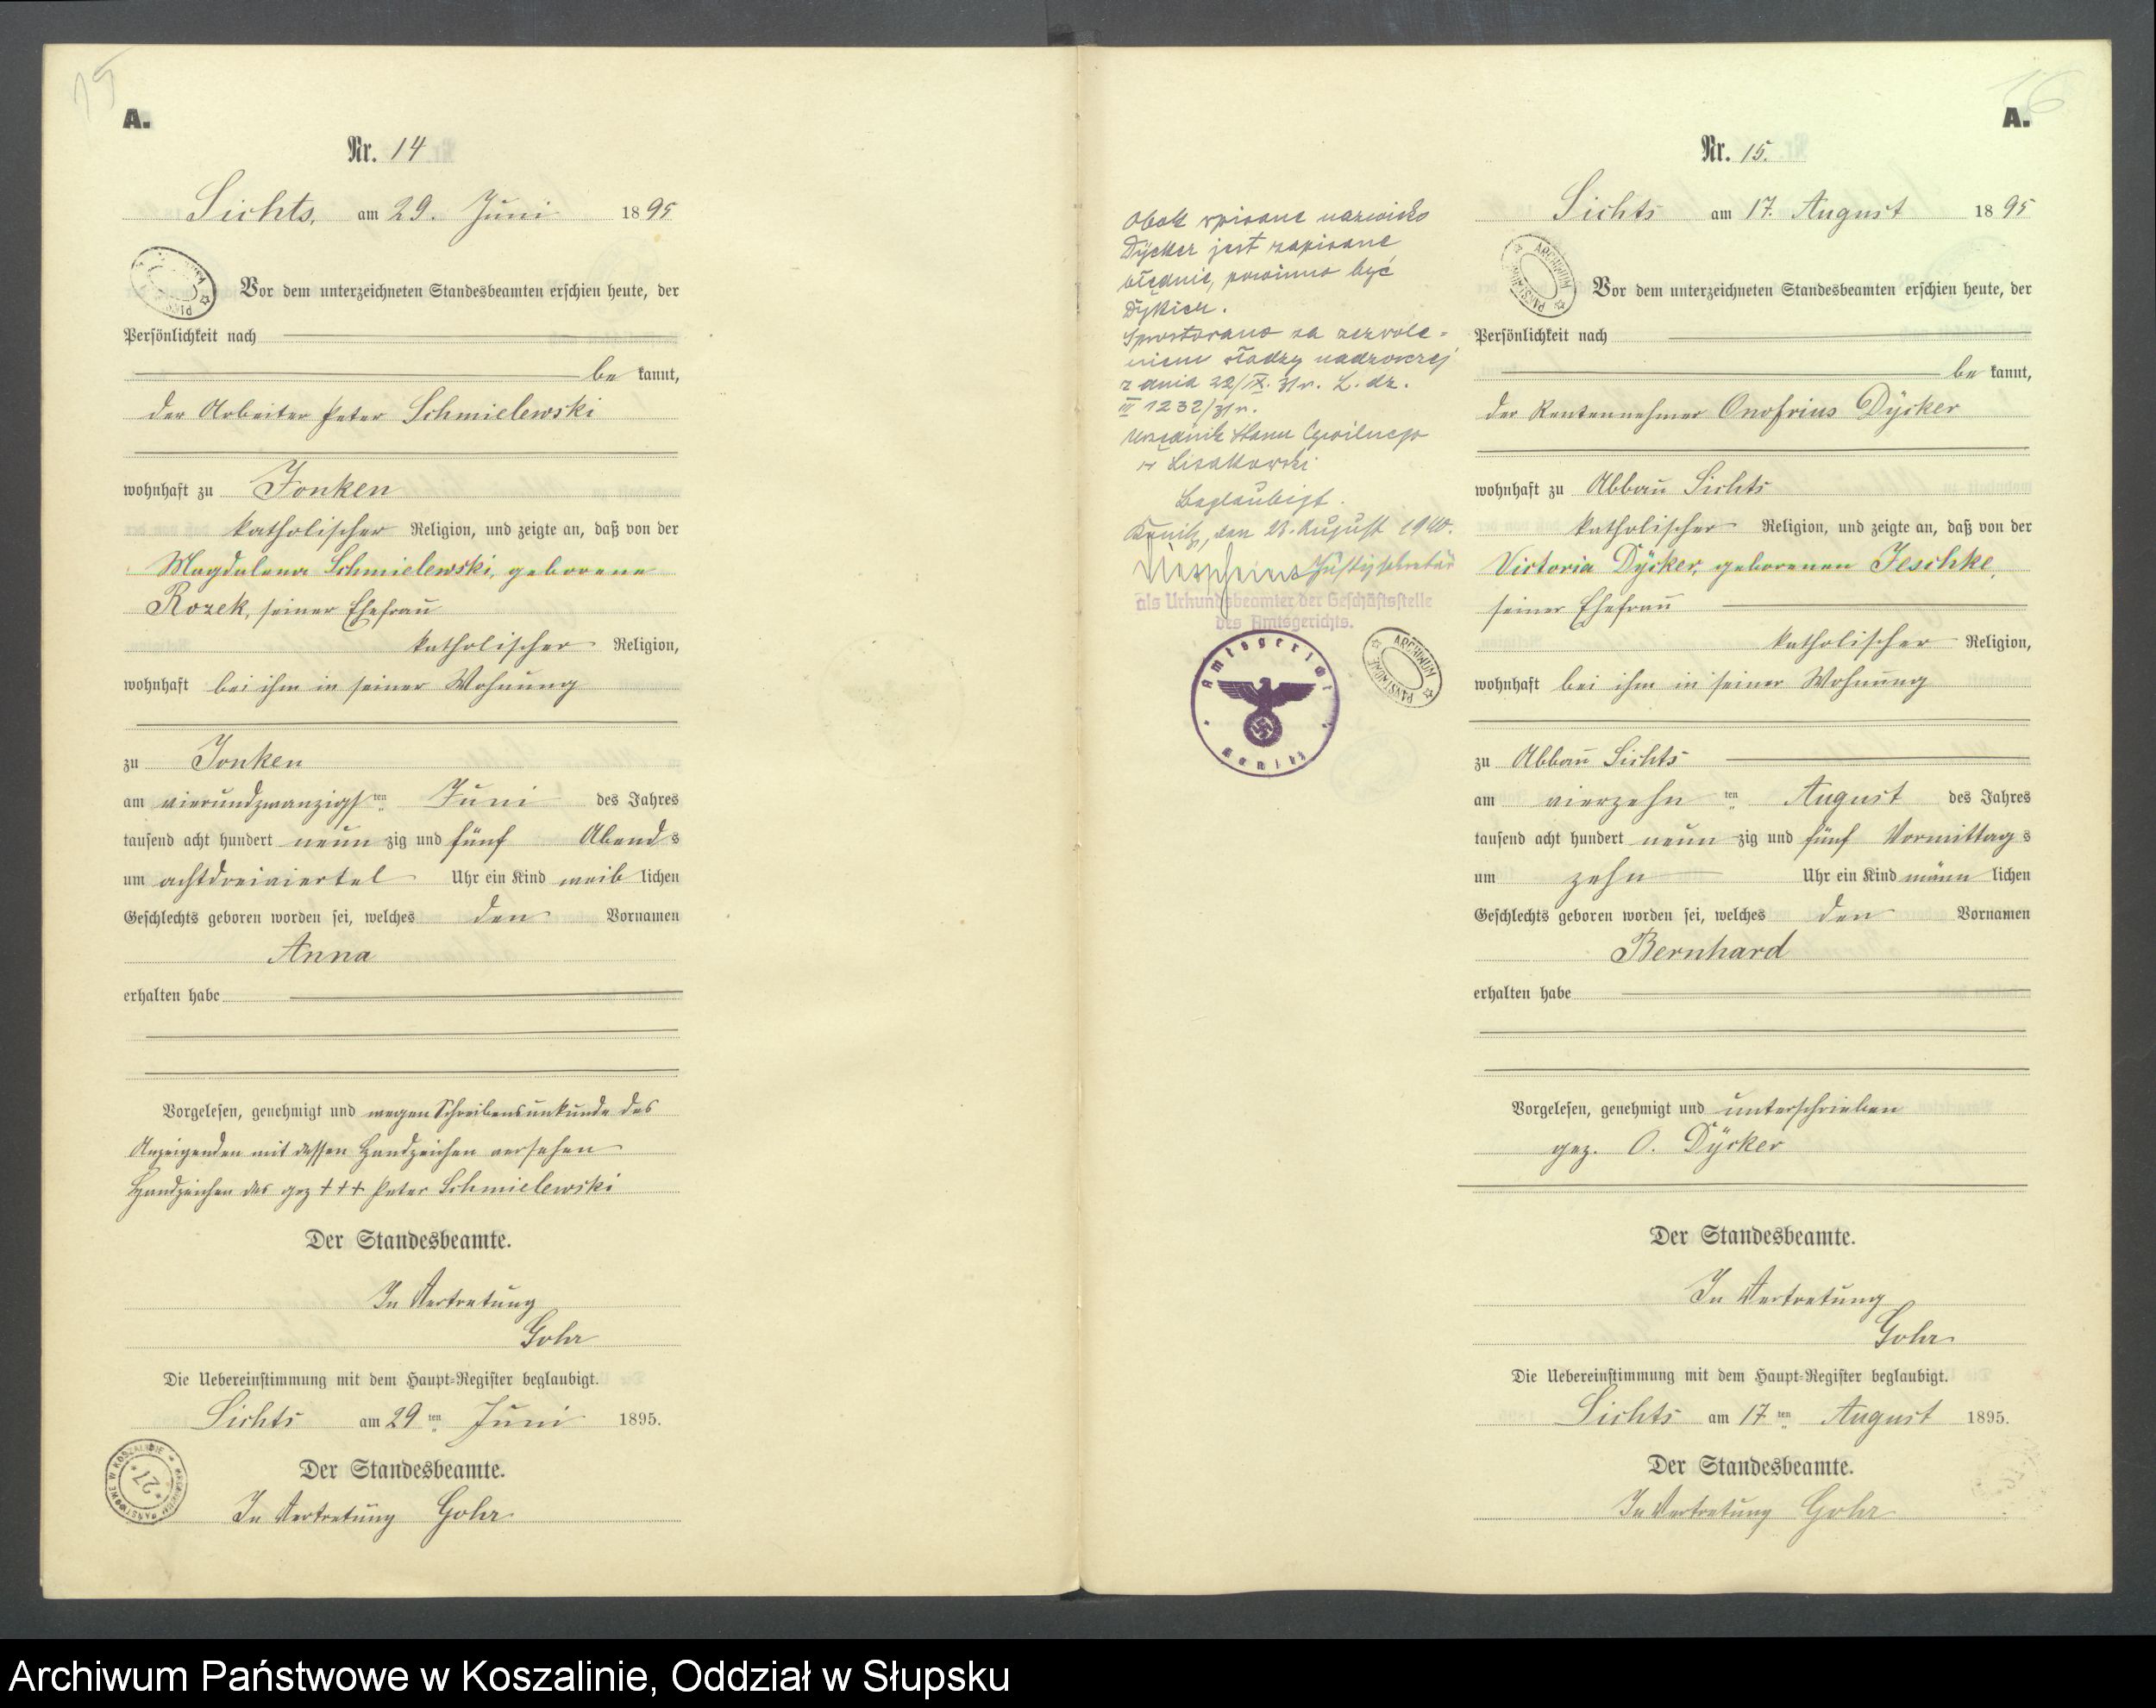 15
A.
Nr. 14
Lichts, am 29. Juni 1895
Vor dem unterzeichneten Standesbeamten erschien heute, der
Persönlichkeit nach
be kannt,
der Arbeiter Peter Schmielewski
wohnhaft zu Jonken
katholischer Religion, und zeigte an, daß von der
Magdalena Schmielewski, geborene
Rozek, seiner Ehefrau
katholischer Religion,
wohnhaft bei ihm in seiner Wohnung
zu Jonken
am vierundzwanzigsten Juni des Jahres
tausend acht hundert neun zig und fünf Abends
um achtdreiviertel Uhr ein Kind weib lichen
Geschlechts geboren worden sei, welches den Vornamen
Anna
erhalten habe
Vorgelesen, genehmigt und wegen Schreibensunkunde des
Anzeigenden mit dessen Handzeichen versehen
Handzeichen des gez +++ Peter Schmielewski
Der Standesbeamte.
In Vertretung
Gohr
Die Uebereinstimmung mit dem Haupt-Register beglaubigt.
Lichts am 29ten Juni 1895.
Der Standesbeamte.
In Vertretung Gohr
ARCHIWUM PAŃSTWOWE W KOSZALINIE
* 27 *
Obok wpisane nazwisko
Dÿcker jest zapisane
błędnie, powinno być
Dykier.
Sprostowano za zezwole-
niem władzy nadzorczej
z dnia 22/IX. 31r. L. dz.
III 1232/31r.
Urzędnik Stanu Cywilnego
Beglaubigt.
Konitz, den 23. August 1940.
Justizsekretär
als Urkundsbeamter der Geschäftsstelle
des Amtsgerichts.
Amtsgericht
Konitz
ARCHIWUM
PAŃSTWOWE
16
A.
Nr. 15.
Lichts am 17. August 1895
ARCHIWUM
PAŃSTWOWE
Vor dem unterzeichneten Standesbeamten erschien heute, der
Persönlichkeit nach
be kannt,
der Rentennehmer Onofrius Dÿcker
wohnhaft zu Abbau Lichts
katholischer Religion, und zeigte an, daß von der
Victoria Dÿcker, geborenen Jeschke,
seiner Ehefrau
katholischer Religion,
wohnhaft bei ihm in seiner Wohnung
zu Abbau Lichts
am vierzehn ten August des Jahres
tausend acht hundert neun zig und fünf Vormittags
um zehn Uhr ein Kind männ lichen
Geschlechts geboren worden sei, welches den Vornamen
Bernhard
erhalten habe
Vorgelesen, genehmigt und unterschrieben
gez. O. Dÿcker
Der Standesbeamte.
In Vertretung
Gohr
Die Uebereinstimmung mit dem Haupt-Register beglaubigt.
Lichts am 17ten August 1895.
Der Standesbeamte.
In Vertretung Gohr
Archiwum Państwowe w Koszalinie, Oddział w Słupsku